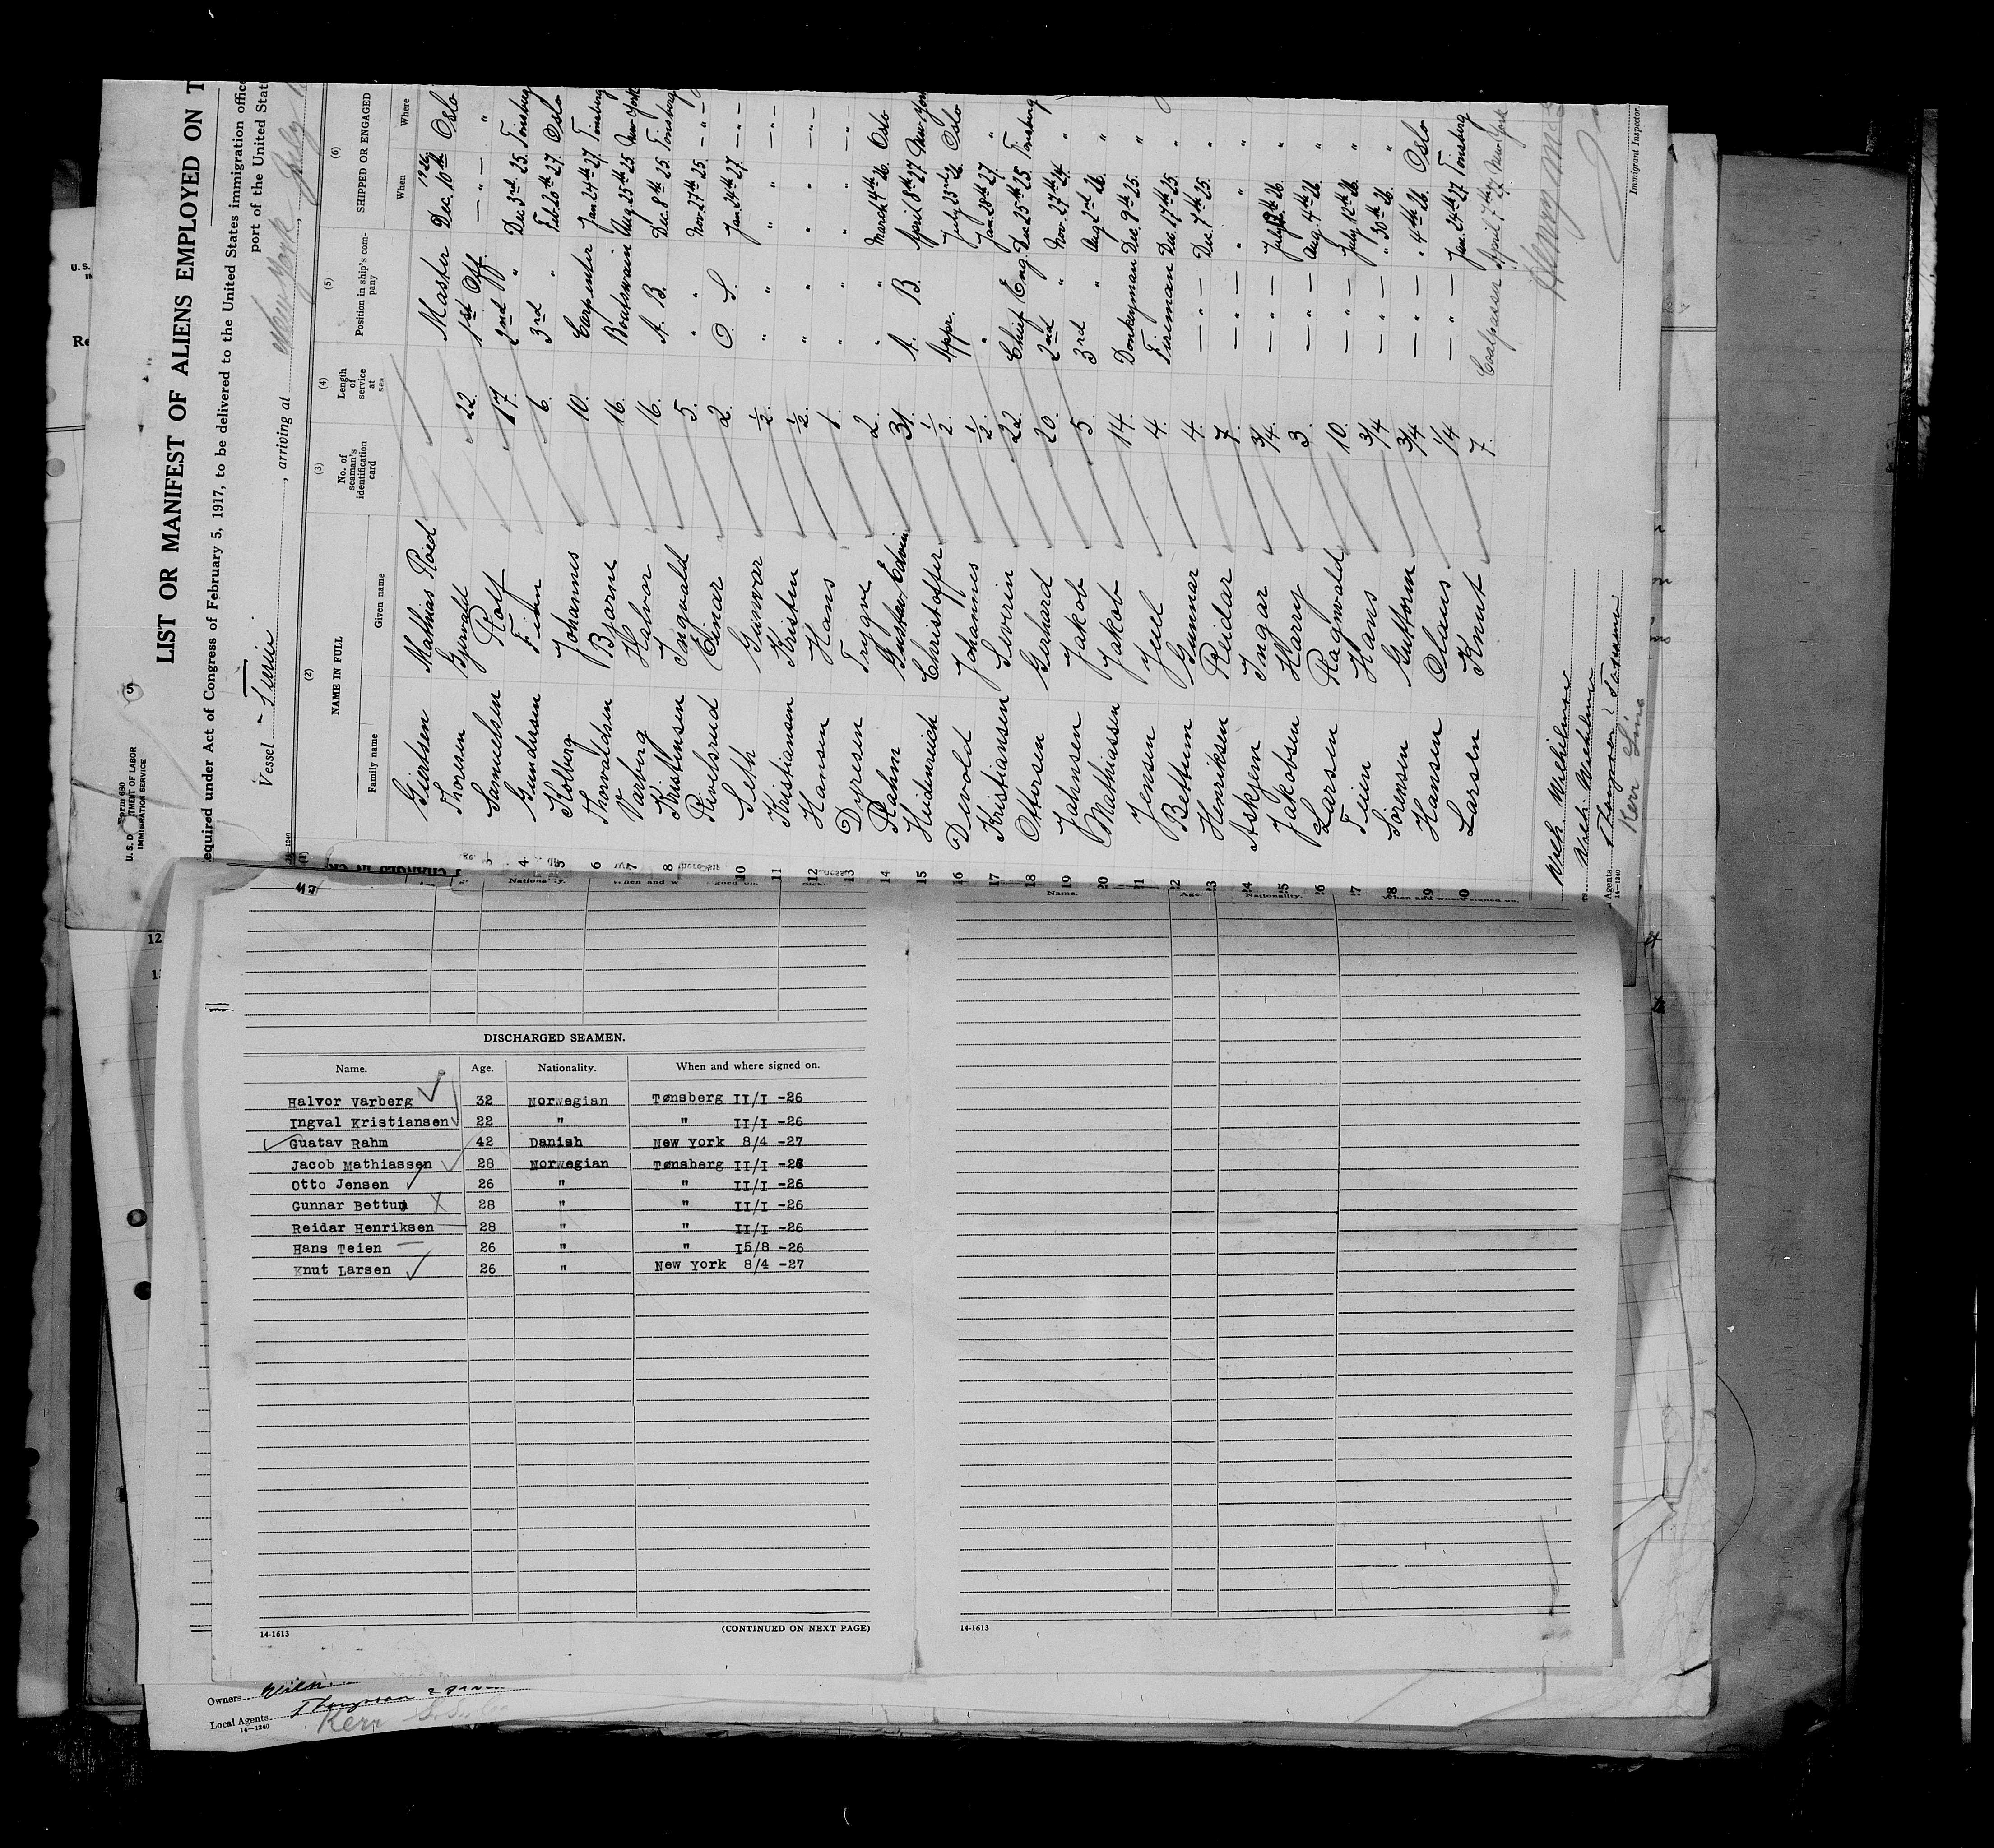 Form 680
U. S. DEPARTMENT OF LABOR
IMMIGRATION SERVICE
5
LIST OR MANIFEST OF ALIENS EMPLOYED ON T
equired under Act of Congress of February 5, 1917, to be delivered to the United States immigration office
port of the United Stat
Vessel , arriving at New York
(2) (3) (4) (5) (6)
NAME IN FULL No. of seaman's identification card Length of service at sea Position in ship's company SHIPPED OR ENGAGED
Family name Given name When Where
Giertsen Mathias Roed Master 1926 Dec. 10th Oslo
Thoresen Gjervald 22 1st Off. — " — "
3 Samuelsen Rolf 17. 2nd " Dec 3rd 25. Tønsberg
4 Gundersen Finn 6. 3rd " Feb. 20th 27. Oslo
5 Kolberg Johannes 10. Carpenter Jan. 24th 27. Tønsberg
6 Thorvaldsen Bjarne 16. Boatswain Aug. 25th 25. New York
7 Varberg Halvor 16. A. B. Dec. 8th 25. Tønsberg
8 Kristiansen Ingvald 5. " Nov. 27th 25. — " —
Einar 2. O. S. Jan. 24th 27. — " —
10 Seth Gunvar ½. " " — " —
11 Kristiansen Kristen ½. " " — " —
12 Hansen Hans 1. " " — " —
13 Dyresen Trygve 2. " March 4th 26. Oslo
14 Rahm Gustav Edvin 31. A. B. April 8th 27. New York
15 Heidenreich Christoffer ½. Appr. July 23rd 26. Oslo
16 Devold Johannes ½. " Jan. 28th 27. "
17 Kristiansen Severin 22. Chief Eng. Dec. 25th 25. Tønsberg
18 Ottersen Gerhard 20. 2nd " Nov. 27th 24. "
19 Johnsen Jakob 5. 3rd " Aug. 2nd 26. "
20 Mathiassen Jakob 14. Donkeyman Dec. 9th 25. "
21 Jensen 4. Fireman Dec. 17th 25. "
22 Bettum Gunnar 4. — " — Dec. 7th 25. "
23 Henriksen Reidar 7. — " — " "
24 Askjem Ingar ¾. — " — July 26. "
25 Jakobsen Harry 3. — " — Aug. 4th 26. "
26 Larsen Ragnvald 10. — " — July 12th 26. "
27 Teien Hans 3/4 — " — " 30th 26. "
28 Sorensen Guttorm 3/4 — " — " 4th 26. Oslo
29 Hansen Olaus 1/4 — " — Jan. 24th 27. Tønsberg
30 Larsen Knut 7. Coalpasser April 7th 27 New York
Wilh. Wilhelmsen
Wilh. Wilhelmsen
Agents
14—1240
Kerr Line
Immigrant Inspector.
Name. Age. Nationality. When and where signed on.
DISCHARGED SEAMEN.
Name. Age. Nationality. When and where signed on.
Halvor Varberg 32 Norwegian Tønsberg II/I -26
Ingval Kristiansen 22 " " II/I -26
Guatav Rahm 42 Danish New York 8/4 -27
Jacob Mathiassen 28 Norwegian Tønsberg II/I -26
Otto Jensen 26 " " II/I -26
Gunnar Bettum 28 " " II/I -26
Reidar Henriksen 28 " " II/I -26
Hans Teien 26 " " I5/8 -26
Knut Larsen 26 " New York 8/4 -27
14-1613 (CONTINUED ON NEXT PAGE) 14-1613
Owners
Local Agents
14—1240
Kerr